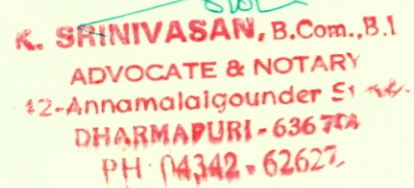 K. SRINIVASAN, B.Com., B.
ADVOCATE & NOTARY
42-Annamalaigounder
DHARMAPURI - 636
PH 04342 - 62627